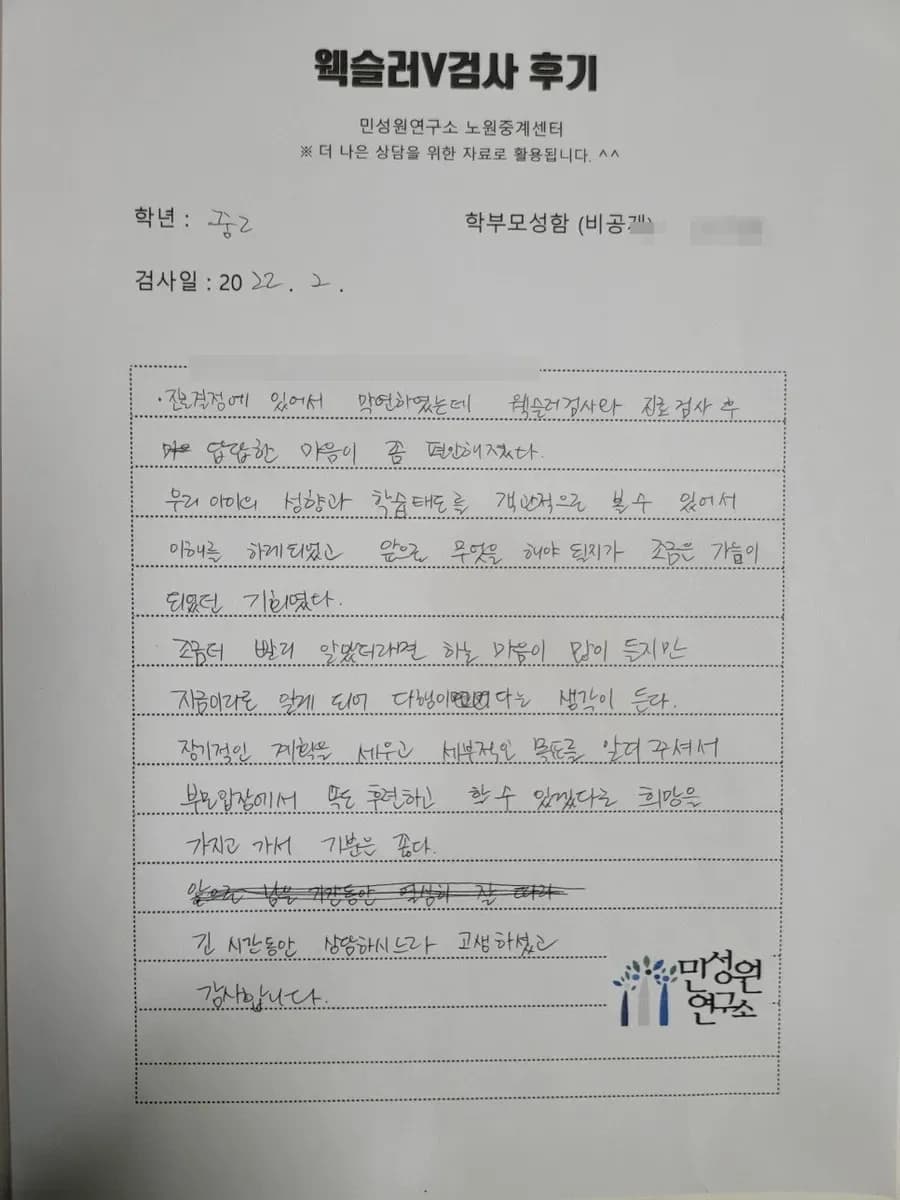 웩슬러V검사 후기
민성원연구소 노원중계센터
※ 더 나은 상담을 위한 자료로 활용됩니다. ^^
학년 : 중2
학부모성함 (비공개)
검사일 : 2022. 2.
·진로결정에 있어서 막연하였는데 웩슬러검사와 진로검사 후
답답한 마음이 좀 편안해졌다.
우리 아이의 성향과 학습태도를 객관적으로 볼 수 있어서
이해를 하게되었고 앞으로 무엇을 해야 될지가 조금은 가늠이
되었던 기회였다.
조금더 빨리 알았더라면 하는 마음이 많이 들지만
지금이라도 알게 되어 다행이다는 생각이 든다.
장기적인 계획을 세우고 세부적인 목표를 알려 주셔서
부모입장에서 또 후련하고 할 수 있겠다는 희망을
가지고 가서 기분은 좋다.
앞으로 남은 기간동안 열심히 잘 따라
긴 시간동안 상담하시느라 고생하셨고
감사합니다.
민성원
연구소